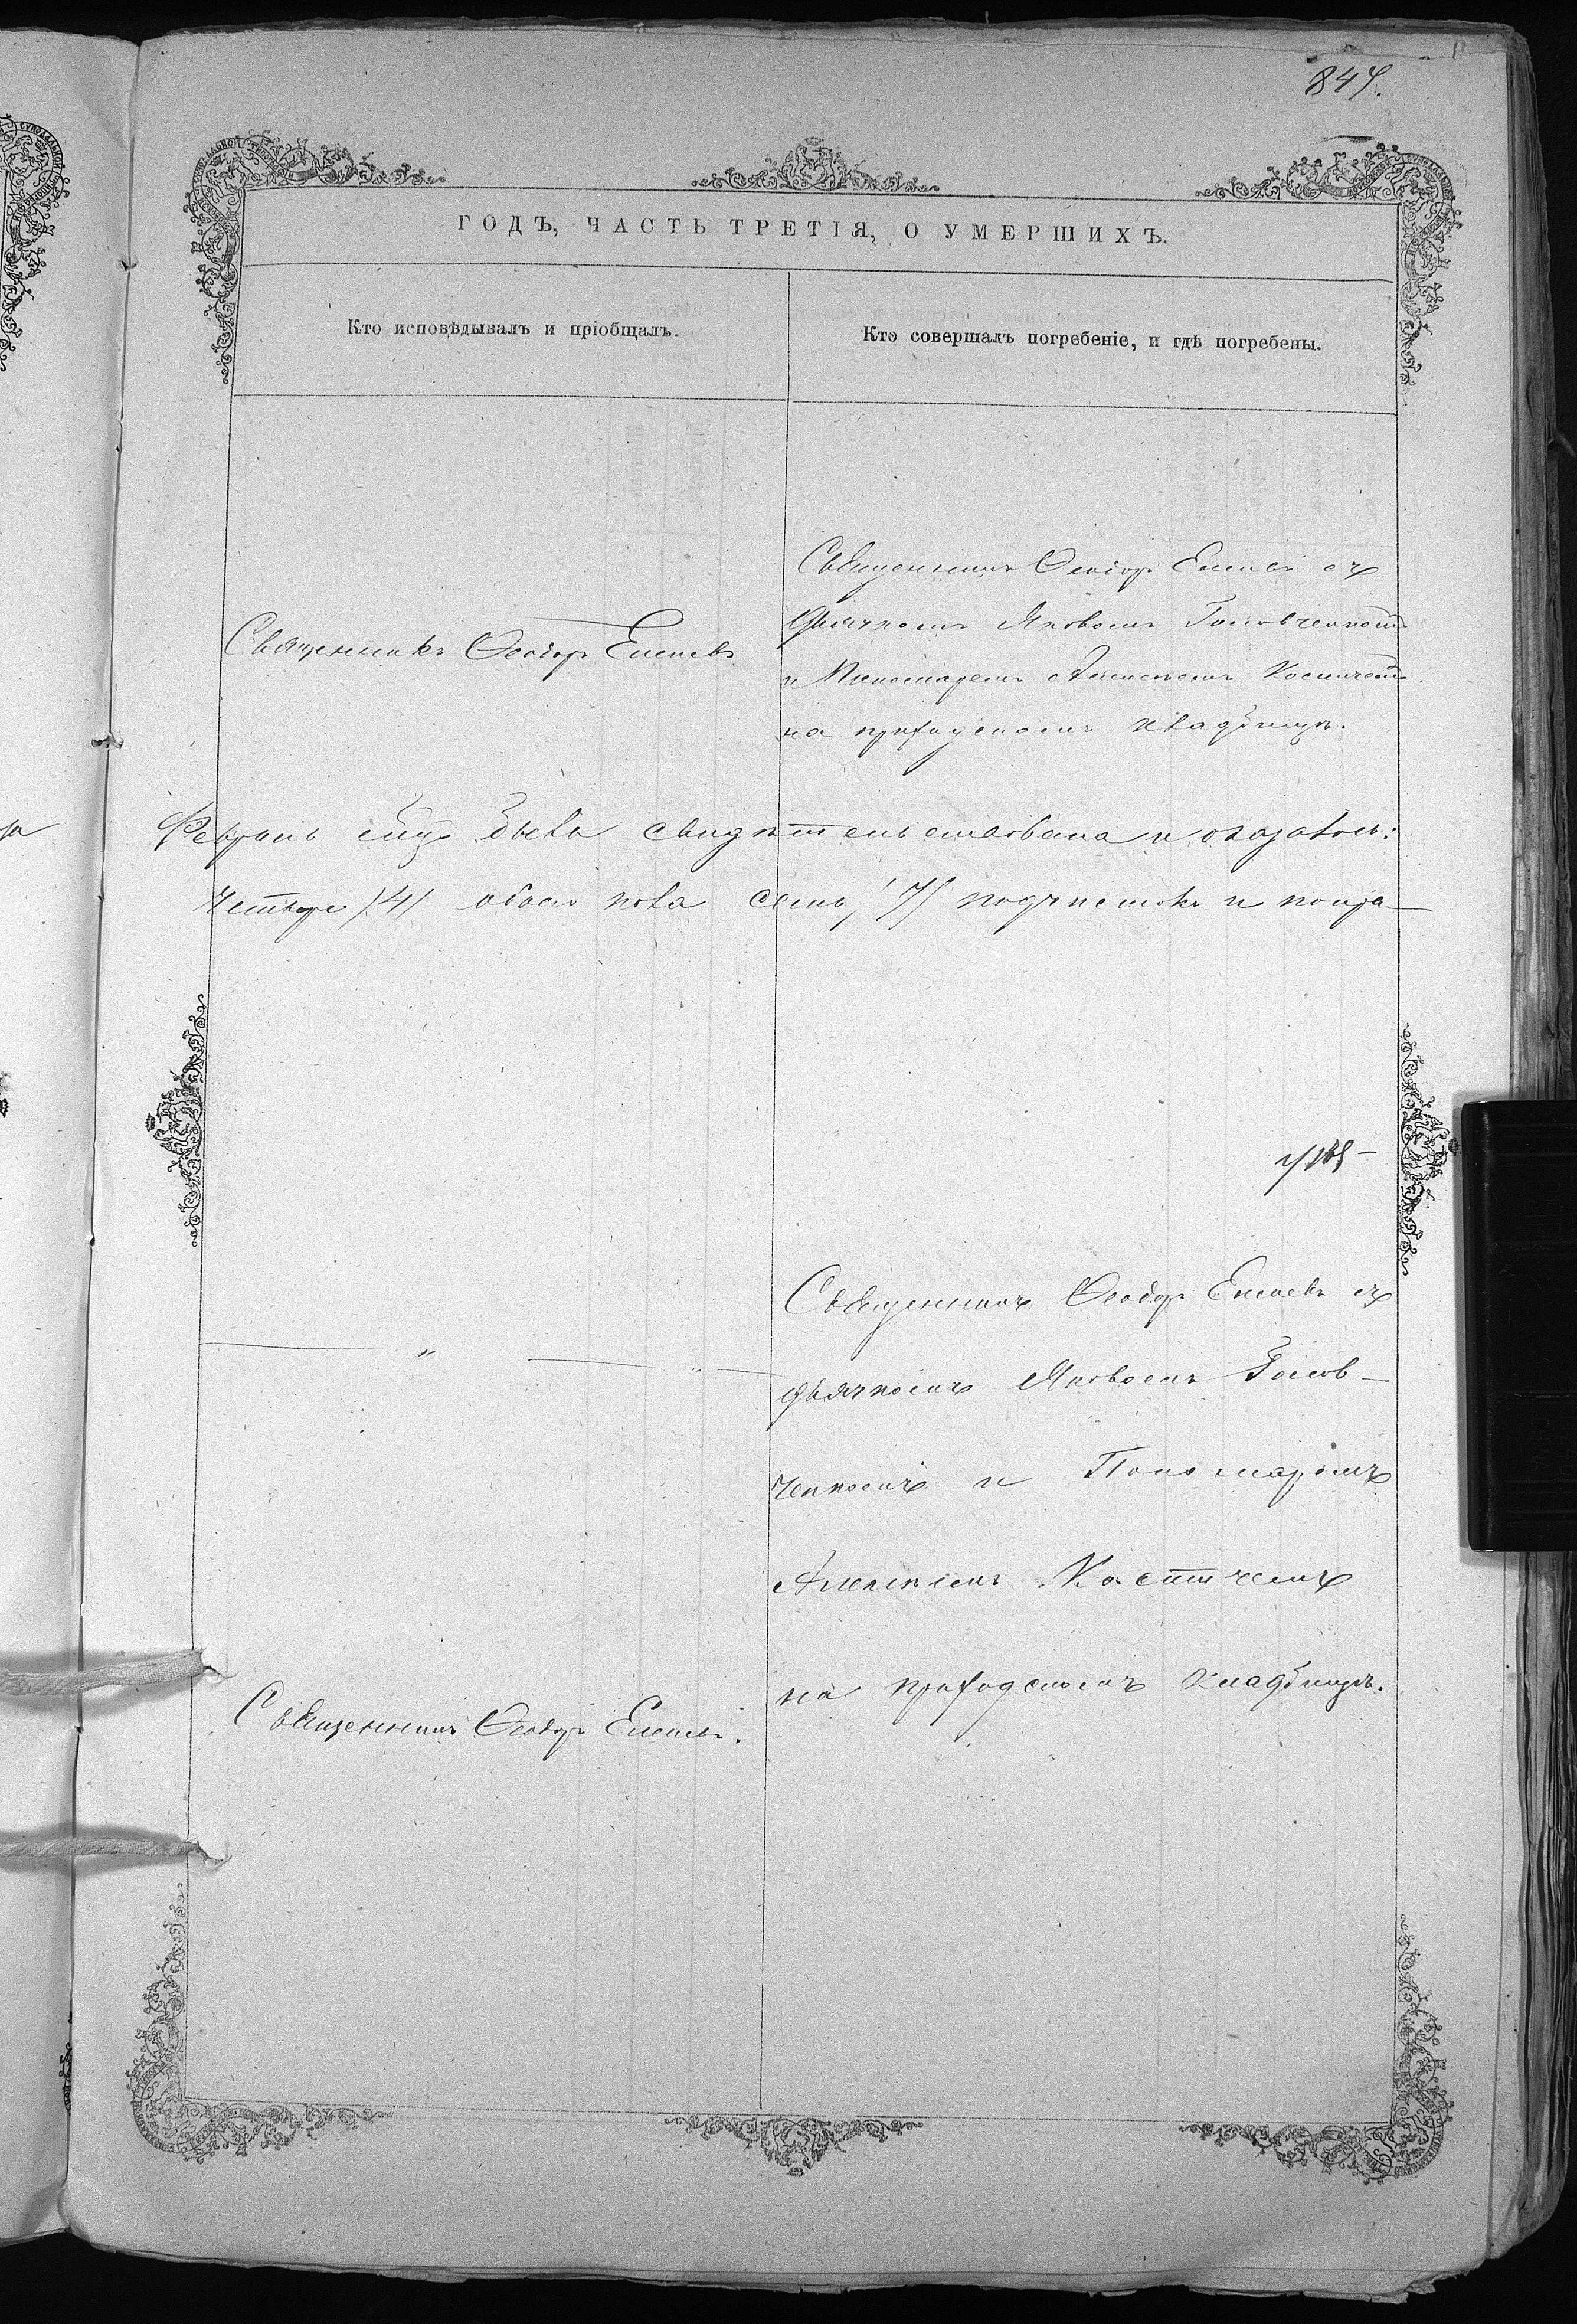 847.
ГОДЪ, ЧАСТЬ ТРЕТІЯ, О УМЕРШИХЪ.
Кто исповѣдывалъ и пріобщалъ.
Кто совершалъ погребеніе, и гдѣ погребены.
Священникъ Ѳеодоръ
Священникъ Ѳеодоръ съ
дьячкомъ Яковомъ Головченкомъ
и Пономаремъ Алексѣемъ Костичемъ
на приходскомъ кладбищѣ.
Февраль мцъ была свидѣтельствована и оказалось:
Четыре /4/ обоего пола семь /7/
Священникъ Ѳеодоръ съ
дьячкомъ Яковомъ Голов-
ченкомъ и Пономаремъ
Алексѣемъ Костичемъ
на приходскомъ кладбищѣ.
Священникъ Ѳеодоръ